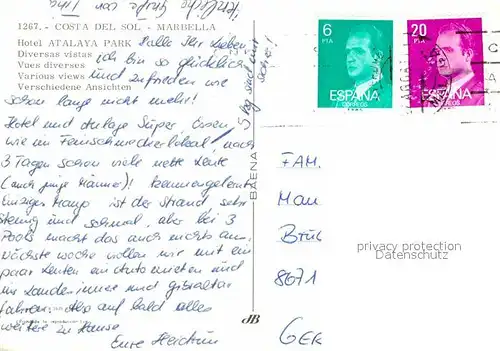 1267.- COSTA DEL SOL - MARBELLA
Hotel ATALAYA PARK
Hallo Ihr Lieben,
Diversas vistas
ich bin so glücklich
Vues diverses
Various views
und zufrieden wie
Verschiedene Ansichten
schon lange nicht mehr!
Hotel und Anlage Super, Essen
wie im Feinschmeckerlokal! nach
3 Tagen schon viele nette Leute
(auch junge Männer)! kennengelernt.
Einziges Manko ist der Strand, sehr
steinig und schmal, aber bei 3
Pools macht das auch nichts aus.
Nächste Woche wollen wir mit ein
paar Leuten ein Auto mieten und
ins Landesinnere und Gibraltar
fahren. Also auf bald alles
weitere zu Hause
Eure
BAENA
JB
6
PTA
ESPAÑA
CORREOS
20
PTA
ESPAÑA
CORREOS
FAM.
Mau
privacy protection
Datenschutz
8671
GER